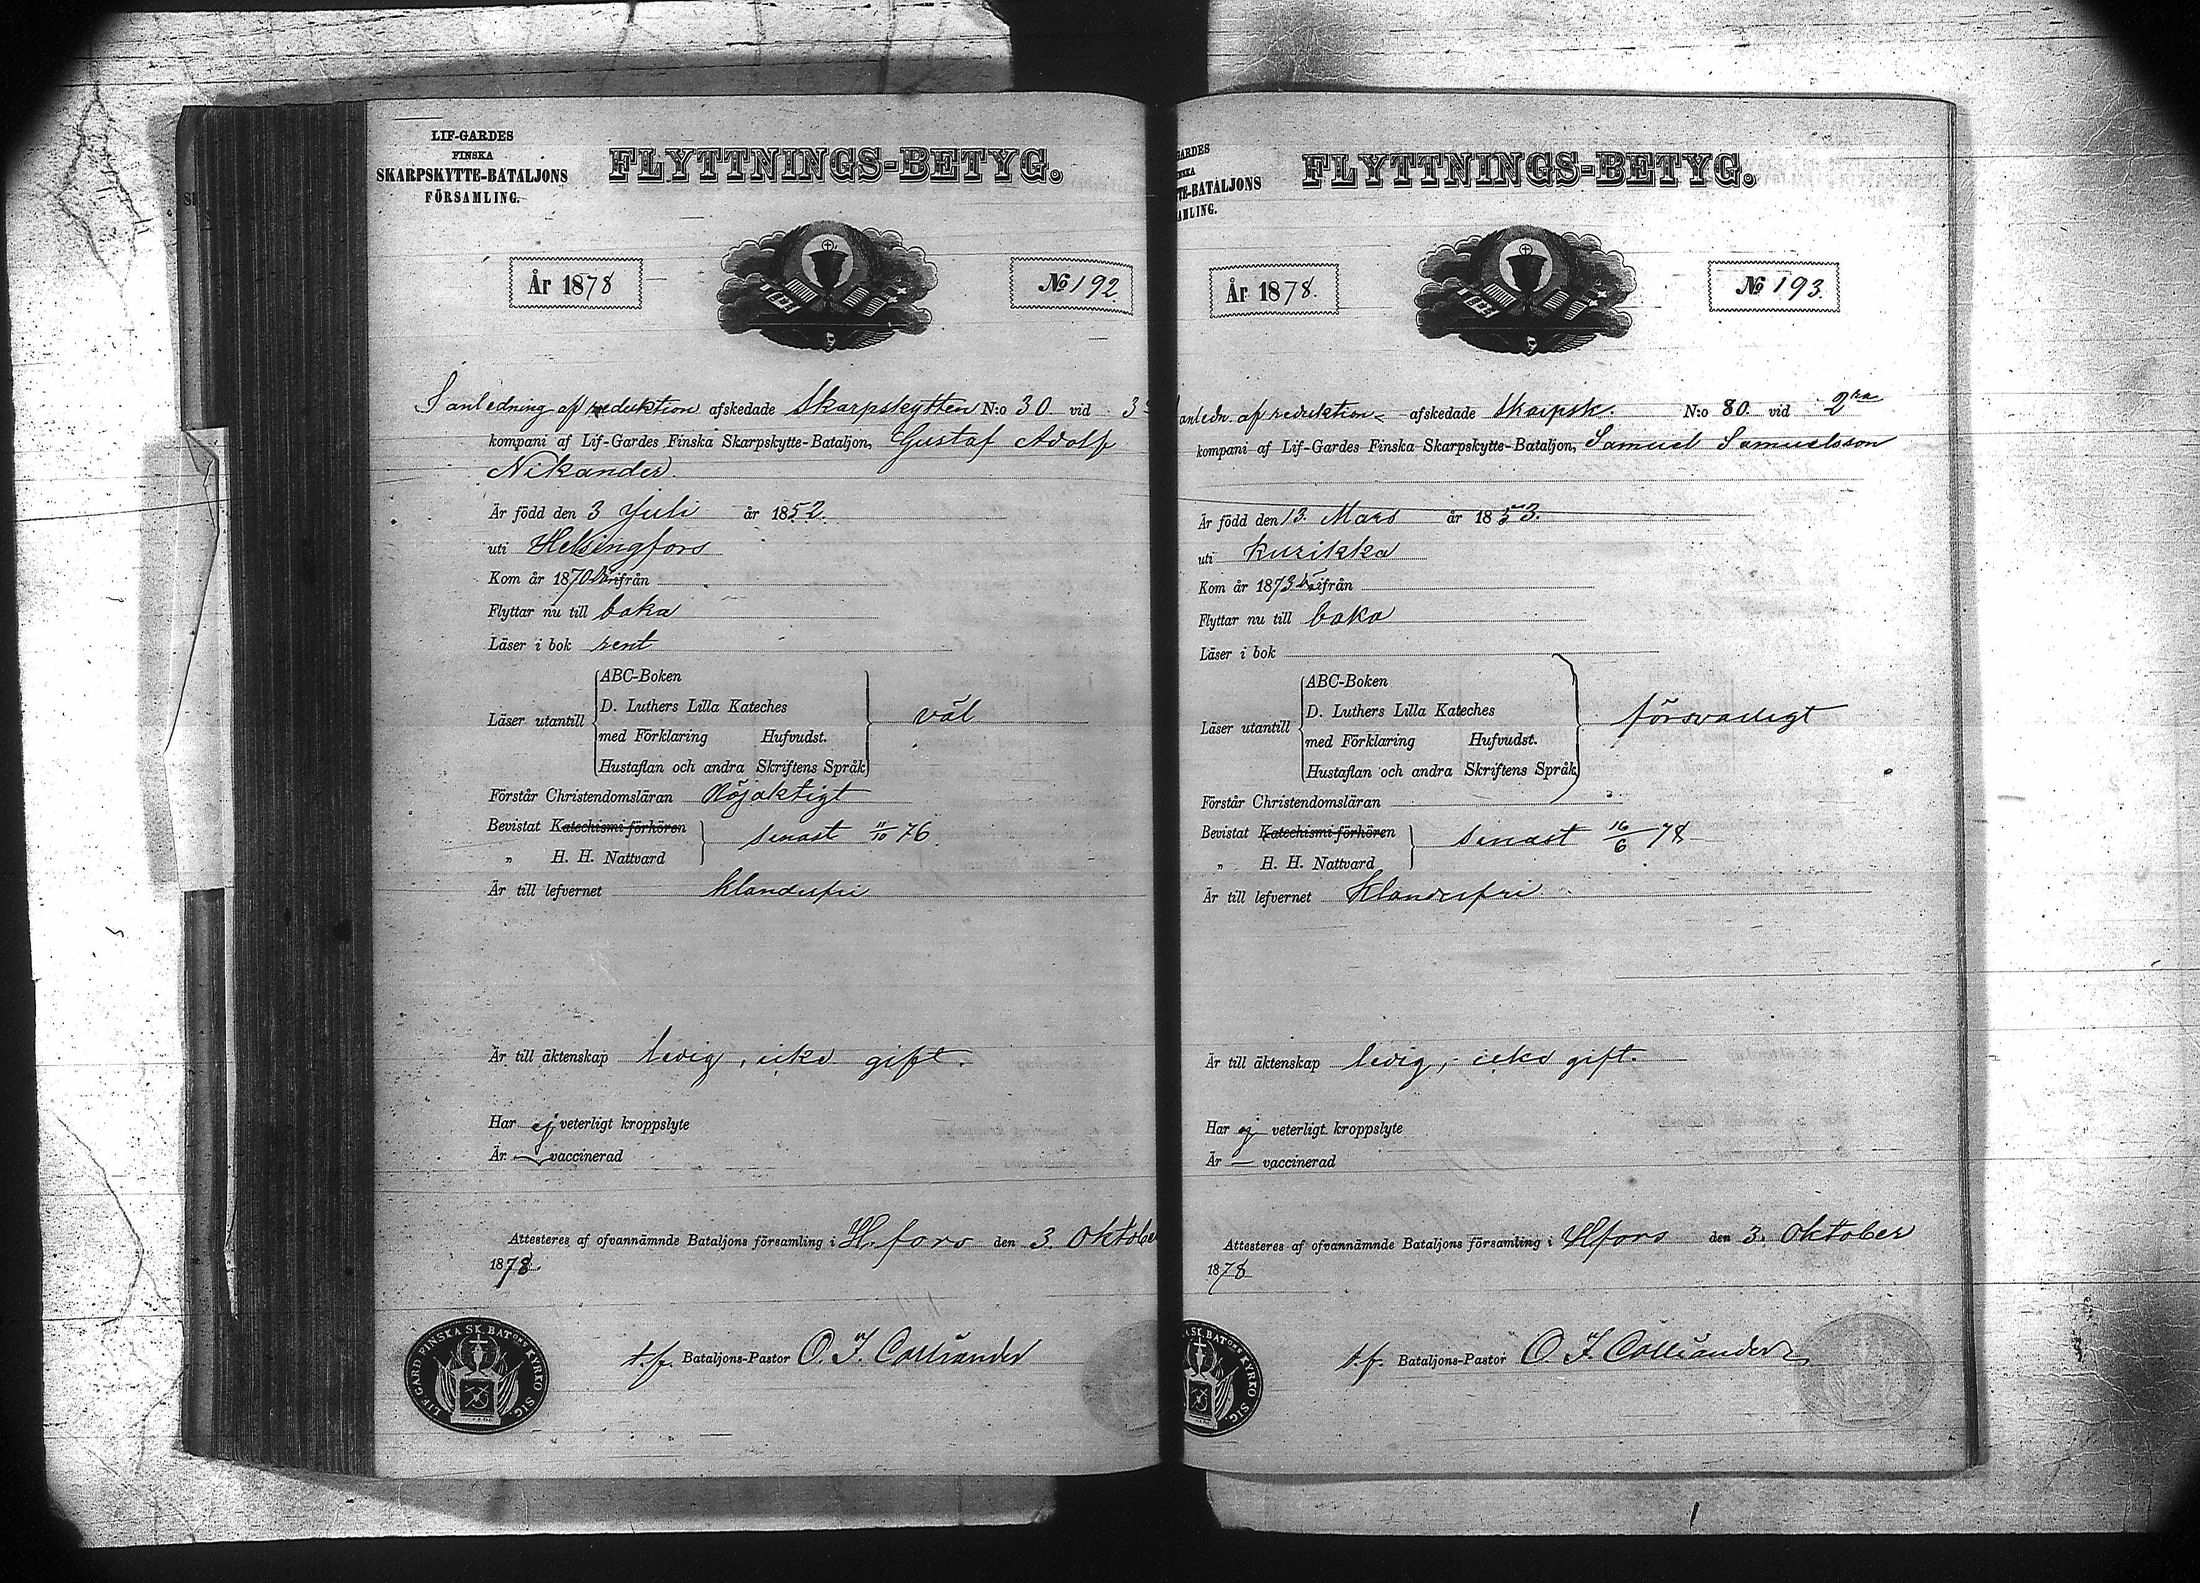 LIF-GARDES
FINSKA
SKARPSKYTTE-BATALJONS
FÖRSAMLING.
FLYTTNINGS-BETYG.
År 1878
No 192.
I anledning af reduktion afskedade Skarpskytten N:o 30 vid 3
kompani af Lif-Gardes Finska Skarpskytte-Bataljon, Gustaf Adolf
Nikander.
Är född den 3 Juli år 1852.
uti Helsingfors
Kom år 1870 ifrån
Flyttar nu till baka
Läser i bok rent
ABC-Boken
D. Luthers Lilla Kateches
Läser utantill med Förklaring Hufvudst. väl
Hustaflan och andra Skriftens Språk
Förstår Christendomsläran Nöjaktigt
Bevistat Katechismi-förhören senast 11/10 76.
„ H. H. Nattvard
Är till lefvernet klanderfri
Är till äktenskap ledig, icke gift.
Har ej veterligt kroppslyte
Är — vaccinerad
Attesteres af ofvannämnde Bataljons församling i H.fors den 3. Oktober
1878.
t.f. Bataljons-Pastor O. F. Colliander
LIF. GARD FINSKA SK. BATONS KYRKO SIG.
GARDES
TE-BATALJONS
AMLING.
FLYTTNINGS-BETYG.
År 1878.
No 193.
anledn. af reduktion afskedade Skarpsk. N:o 80. vid 2dra
kompani af Lif-Gardes Finska Skarpskytte-Bataljon, Samuel Samuelsson
Är född den 13. Mars år 1853.
uti Kurikka
Kom år 1873 ifrån
Flyttar nu till baka
Läser i bok
ABC-Boken
D. Luthers Lilla Kateches
Läser utantill med Förklaring Hufvudst. försvarligt
Hustaflan och andra Skriftens Språk
Förstår Christendomsläran
Bevistat Katechismi-förhören senast 16/6 78
„ H. H. Nattvard
Är till lefvernet Klanderfri
Är till äktenskap ledig, icke gift.
Har ej veterligt kroppslyte
Är — vaccinerad
Attesteres af ofvannämnde Bataljons församling i Hfors den 3. Oktober
1878
t.f. Bataljons-Pastor O. F. Colliander
SK. BATONS KYRKO SIG.